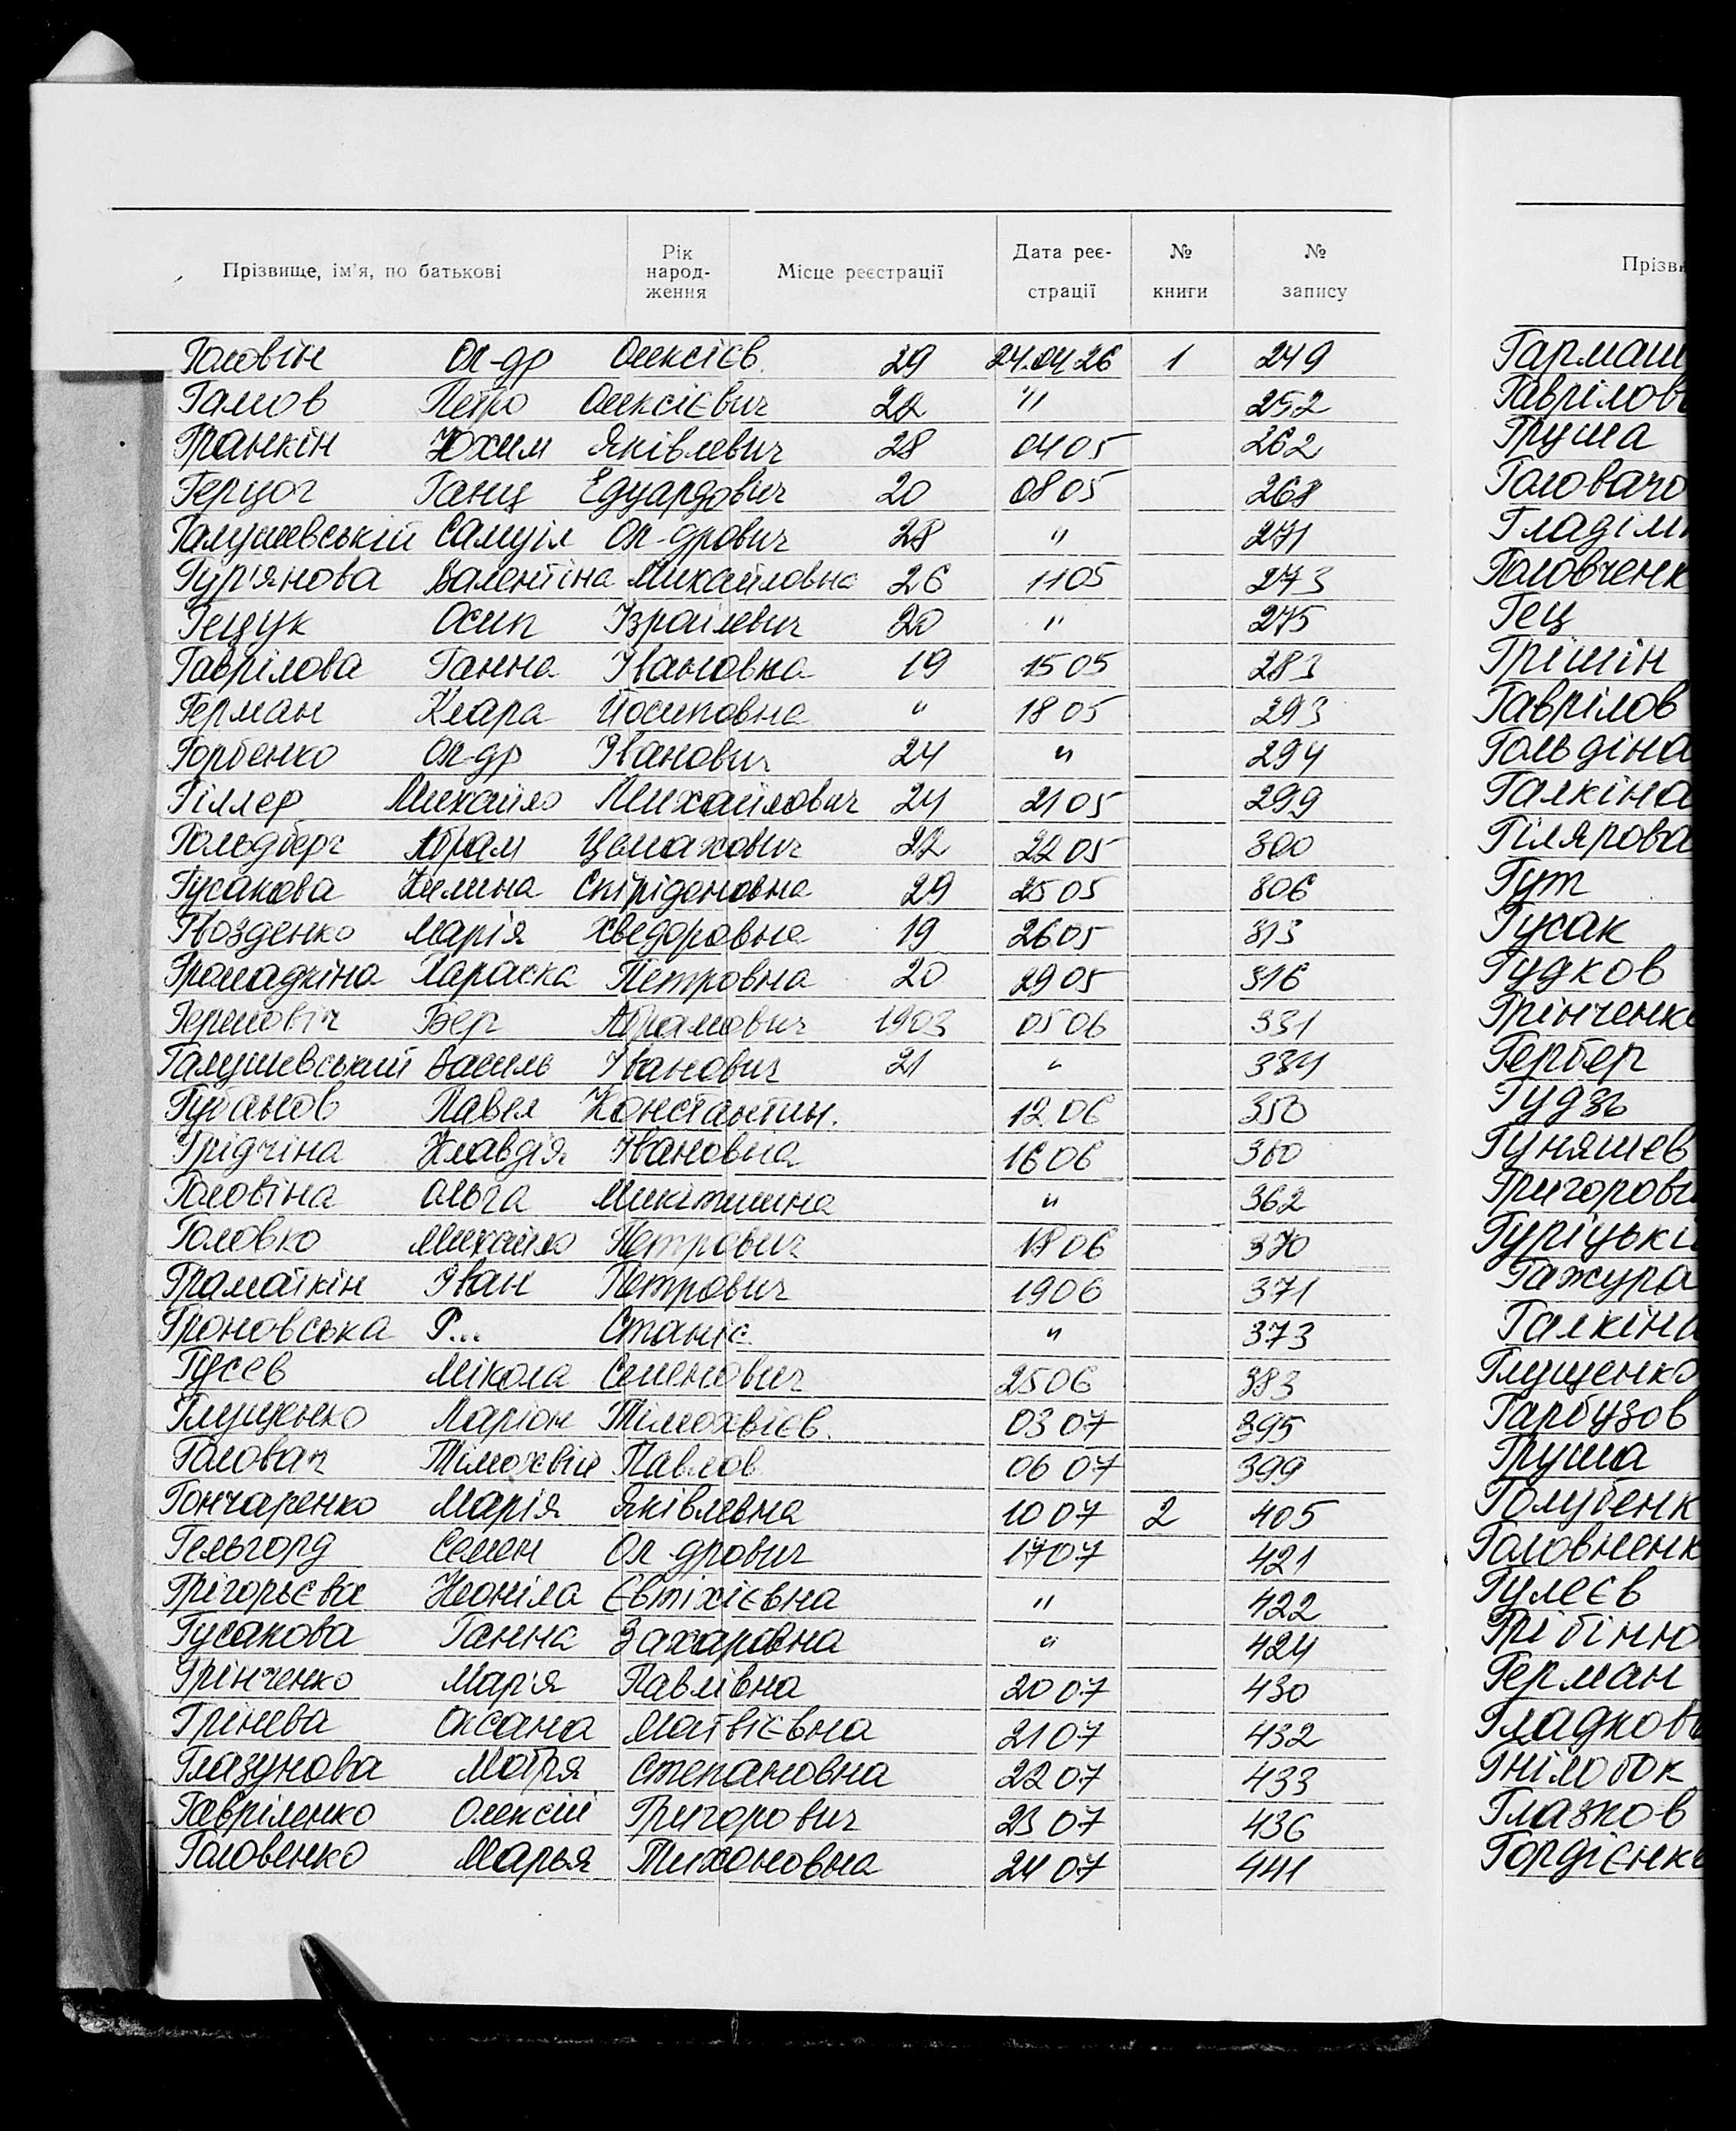 Прізвище, ім'я, по батькові Рік народ-ження Місце реєстрації Дата реє-страції № книги № запису
Головін Ол-др Олексієв. 29 24.04 26 1 249
Гамов Петро Олексієвич 22 " 252
Гранкін Юхим Яківлевич 28 04 05 262
Герцог Ганц Едуардович 20 08 05 268
Галушевській Самуїл Ол-дрович 28 " 271
Гур'янова Валентіна Михайловна 26 11 05 273
Гецук Осип Ізраілевич 20 " 275
Гаврілова Ганна Івановна 19 15 05 283
Герман Клара Йосиповна " 18 05 293
Горбенко Ол-др Іванович 24 " 294
Гіллер Михайло Михайлович 24 21 05 299
Гольдберг Абрам Цемахович 22 22 05 300
Гусакова Килина Спірідоновна 29 25 05 306
Гвозденко Марія Хведоровна 19 26 05 313
Громадкіна Параска Петровна 20 29 05 316
Бер Абрамович 1903 05 06 331
Галушевський Василь Іванович 21 " 334
Губанов Павел Константин. 12 06 350
Грідчіна Клавдія Івановна 16 06 360
Головіна Ольга Микітишна " 362
Головко Михайло Петрович 18 06 370
Граматкін Іван Петрович 19 06 371
Гроновська Р... Станіс. " 373
Гусев Мікола Семенович 25 06 383
Глущенко Маріон Тімохвієв. 03 07 395
Головач Тімохвій Павлов. 06 07 399
Гончаренко Марія Яківлевна 10 07 2 405
Гельгорд Семен Ол-дрович 17 07 421
Грігорьєва Неоніла Євтіхієвна " 422
Гусакова Ганна Захаровна " 424
Грінченко Мар'я Павлівна 20 07 430
Грінева Оксана Матвієвна 21 07 432
Глазунова Мотря Степановна 22 07 433
Гавріленко Олексій Григорович 23 07 436
Головенко Марья Тихоновна 24 07 441
Прізв
Гармаш
Гаврілов
Груша
Головачо
Гладілі
Головченк
Гец
Грішін
Гаврілов
Гольдіна
Галкіна
Гілярова
Гут
Гусак
Гудков
Грінченко
Гербер
Гудзь
Гуняшев
Григоров
Гуріцькі
Гажура
Галкіна
Глущенко
Гарбузов
Груша
Голубенк
Головненк
Гулеєв
Грібінно
Герман
Гладков
Гнілобок
Глазков
Гордієнко